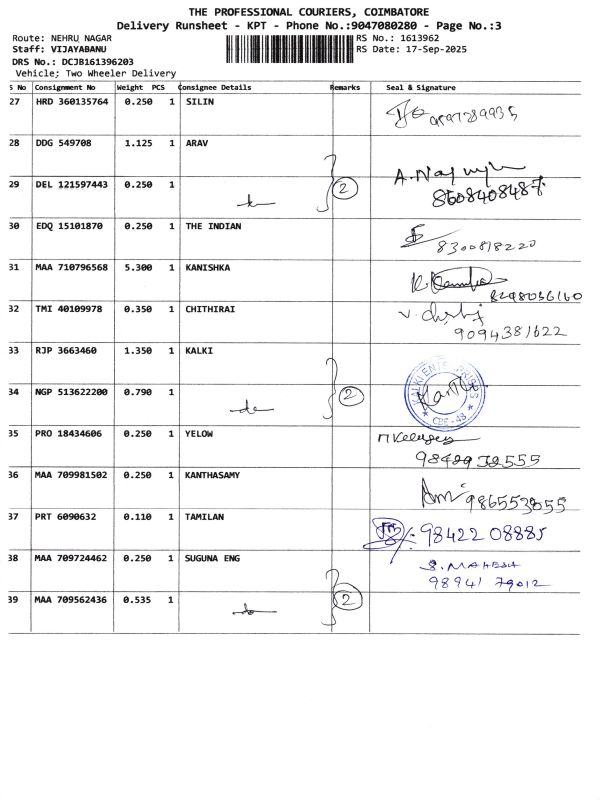 THE PROFESSIONAL COURIERS, COIMBATORE
Delivery Runsheet - KPT - Phone No.:9047080280 - Page No.:3
Route: NEHRU NAGAR RS No.: 1613962
Staff: VIJAYABANU RS Date: 17-Sep-2025
DRS No.: DCJB161396203
Vehicle; Two Wheeler Delivery
S No Consignment No Weight PCS Consignee Details Remarks Seal & Signature
27 HRD 360135764 0.250 1 SILIN
28 DDG 549708 1.125 1 ARAV
29 DEL 121597443 0.250 1 2 8608408487
30 EDQ 15101870 0.250 1 THE INDIAN 8300818220
31 MAA 710796568 5.300 1 KANISHKA
32 TMI 40109978 0.350 1 CHITHIRAI 9094381622
33 RJP 3663460 1.350 1 KALKI
34 NGP 513622200 0.790 1 2 CBE - 48
35 PRO 18434606 0.250 1 YELOW
36 MAA 709981502 0.250 1 KANTHASAMY
37 PRT 6090632 0.110 1 TAMILAN 98422 08885
38 MAA 709724462 0.250 1 SUGUNA ENG S. MAHESH
98941 79012
39 MAA 709562436 0.535 1 2